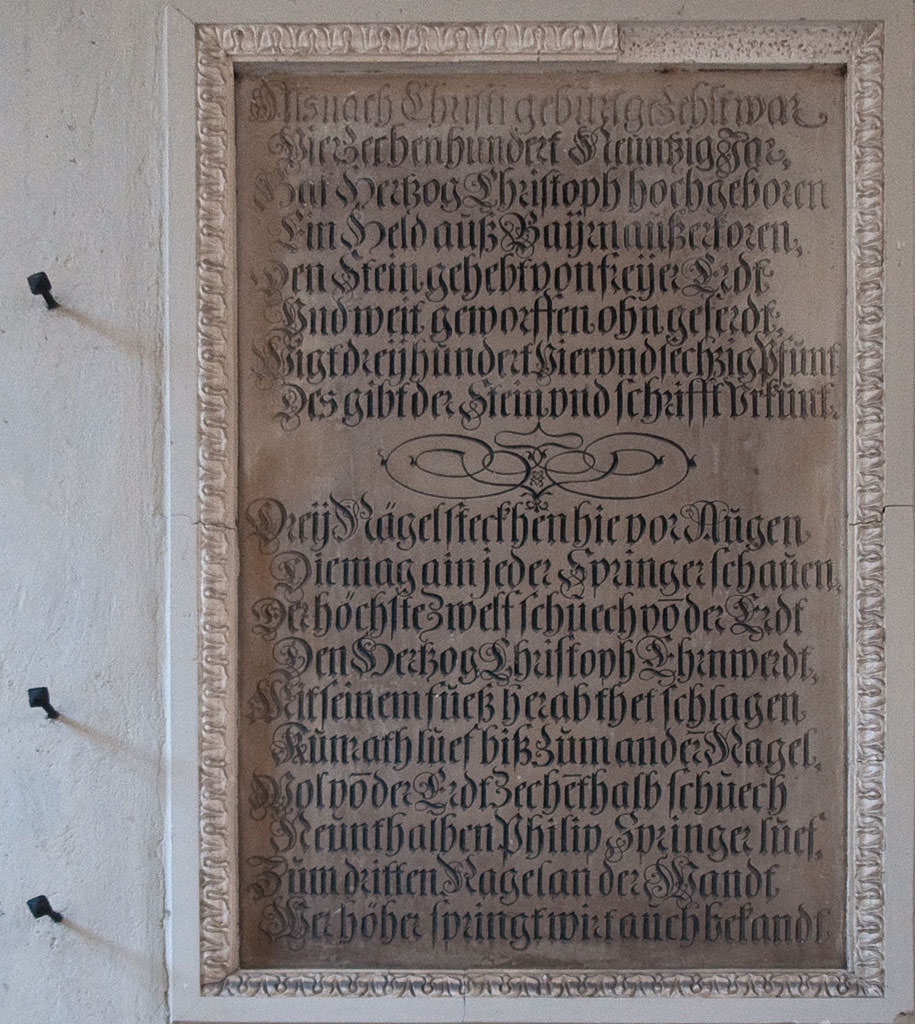 Als nach Christi geburt gezehlt war
Vierzechenhundert Neüntzig Jar,
Hat Hertzog Christoph hochgeboren
Ein Held auß Bayrn außerkoren,
Den Stein gehebt von freyer Erdt
Vnd weit geworffen ohn geferdt,
Wigt dreyhundert Vier vnd sechzig Pfunt
Des gibt der Stein vnd schrifft Vrkunt.
Dreÿ Nägel steckhen hie vor Aŭgen
Die mag ain jeder Springer schaŭen,
Der höchste Zwelf schŭech vō der Erdt
Den Hertzog Christoph Ehrnwerdt,
Mit seinem fŭeß herab thet schlagen
Kŭnrath lŭef biß Zŭm ander Nagel,
Wol vō der Erdt Zechēthalb schŭech
Neunthalben Philip Springer lŭef,
Zŭm dritten Nagel an der Wandt
Wer höher springt wirt aŭch bekandt